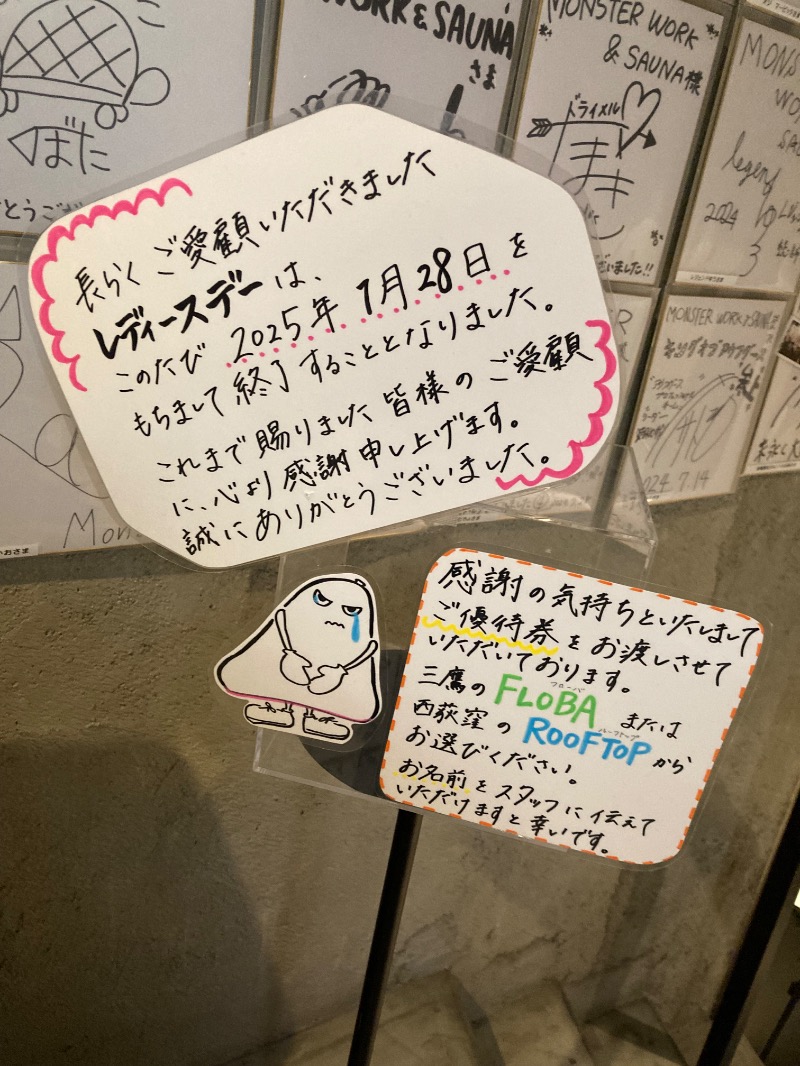 こ
くばた
とうござ
WORK & SAUNA
さま
MONSTER WORK
& SAUNA様
ドライメル
まき
ございました!!
MONS
WO
SAU
legend
2024
3
長らくご愛顧いただきました
レディースデーは、
このたび2025年1月28日を
もちまして終了することとなりました。
これまで賜りました皆様のご愛顧
に、心より感謝申し上げます。
誠にありがとうございました。
MONSTER WORK & SAUNA
2024 7.14
Mon
おさま
感謝の気持ちといたしまして
ご優待券をお渡しさせて
いただいております。
フローバ
三鷹のFLOBAまたは
ルーフトップ
西荻窪のROOFTOPから
お選びください。
お名前をスタッフに伝えて
いただけますと幸いです。